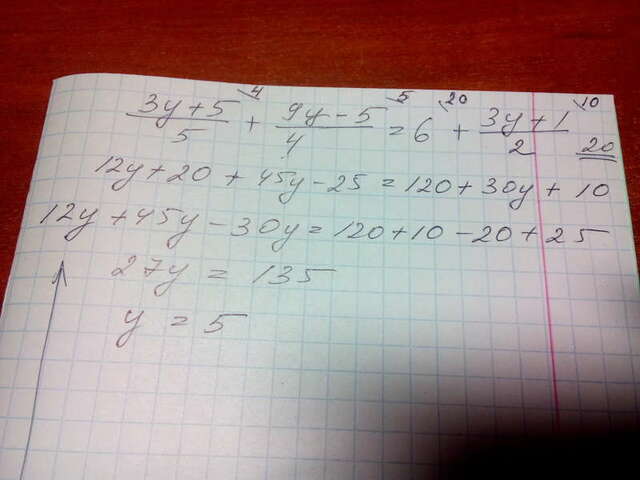 (3y+5)/5 ⁴ + (9y-5)/4 ⁵ = 6 ²⁰ + (3y+1)/2 ¹⁰ 20
12y+20+45y-25=120+30y+10
12y+45y-30y=120+10-20+25
27y=135
y=5